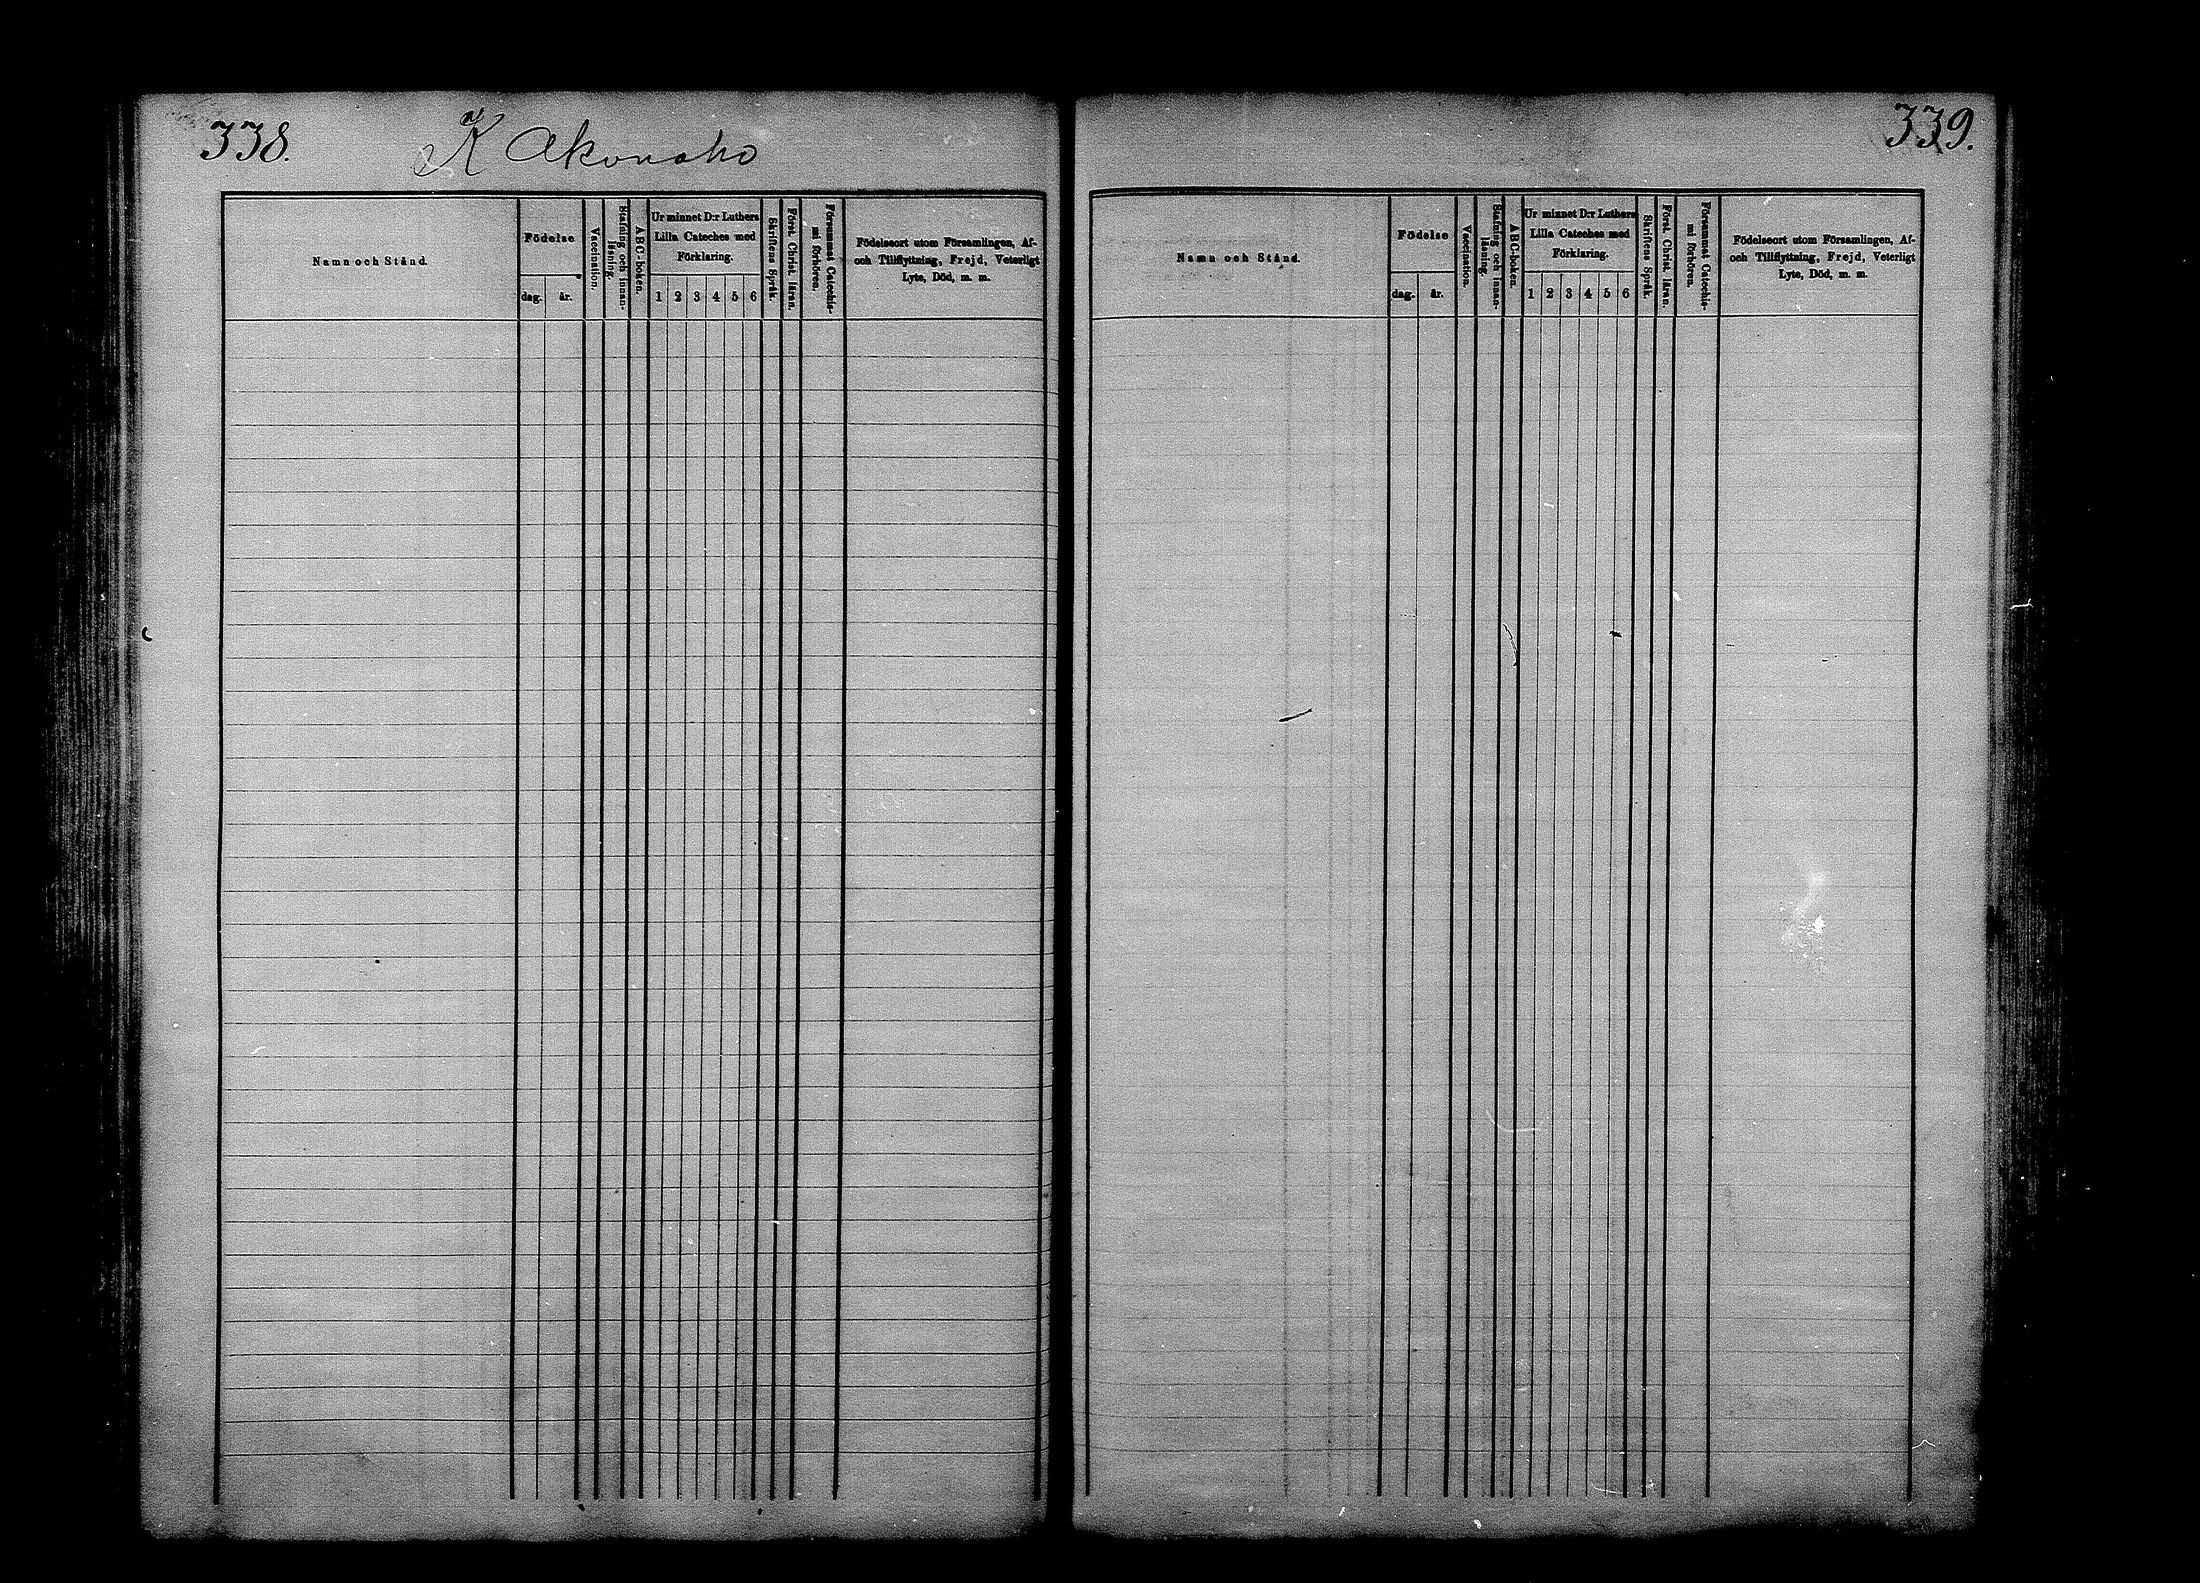 338.
K Akonaho
Namn och Stånd.
Födelse
dag.
år.
Vaccination.
Stafning och innan-
läsning.
ABC-boken.
Ur minnet D:r Luthers
Lilla Cateches med
Förklaring.
1 2 3 4 5 6
Skriftens Språk.
Först. Christ. läran.
Försummat Catechis-
mi förhören.
Födelseort utom Församlingen, Af-
och Tillflyttning, Frejd, Veterligt
Lyte, Död, m. m.
339.
Namn och Stånd.
Födelse
dag.
år.
Vaccination.
Stafning och innan-
läsning.
ABC-boken.
Ur minnet D:r Luthers
Lilla Cateches med
Förklaring.
1 2 3 4 5 6
Skriftens Språk.
Först. Christ. läran.
Försummat Catechis-
mi förhören.
Födelseort utom Församlingen, Af-
och Tillflyttning, Frejd, Veterligt
Lyte, Död, m. m.